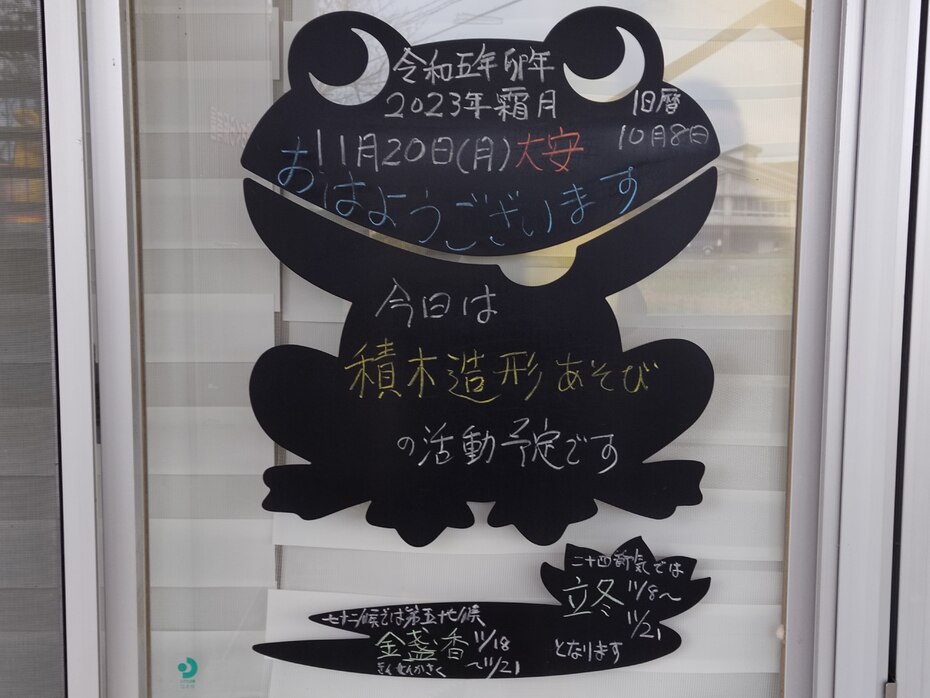 令和五年卯年
2023年霜月
旧暦
10月8日
11月20日(月)大安
おはようございます
今日は
積木造形あそび
の活動予定です
二十四節気では
立冬 11/8〜
11/21
となります
七十二候では第五十七候
金盞香 11/18
〜11/21
きんせんかさく